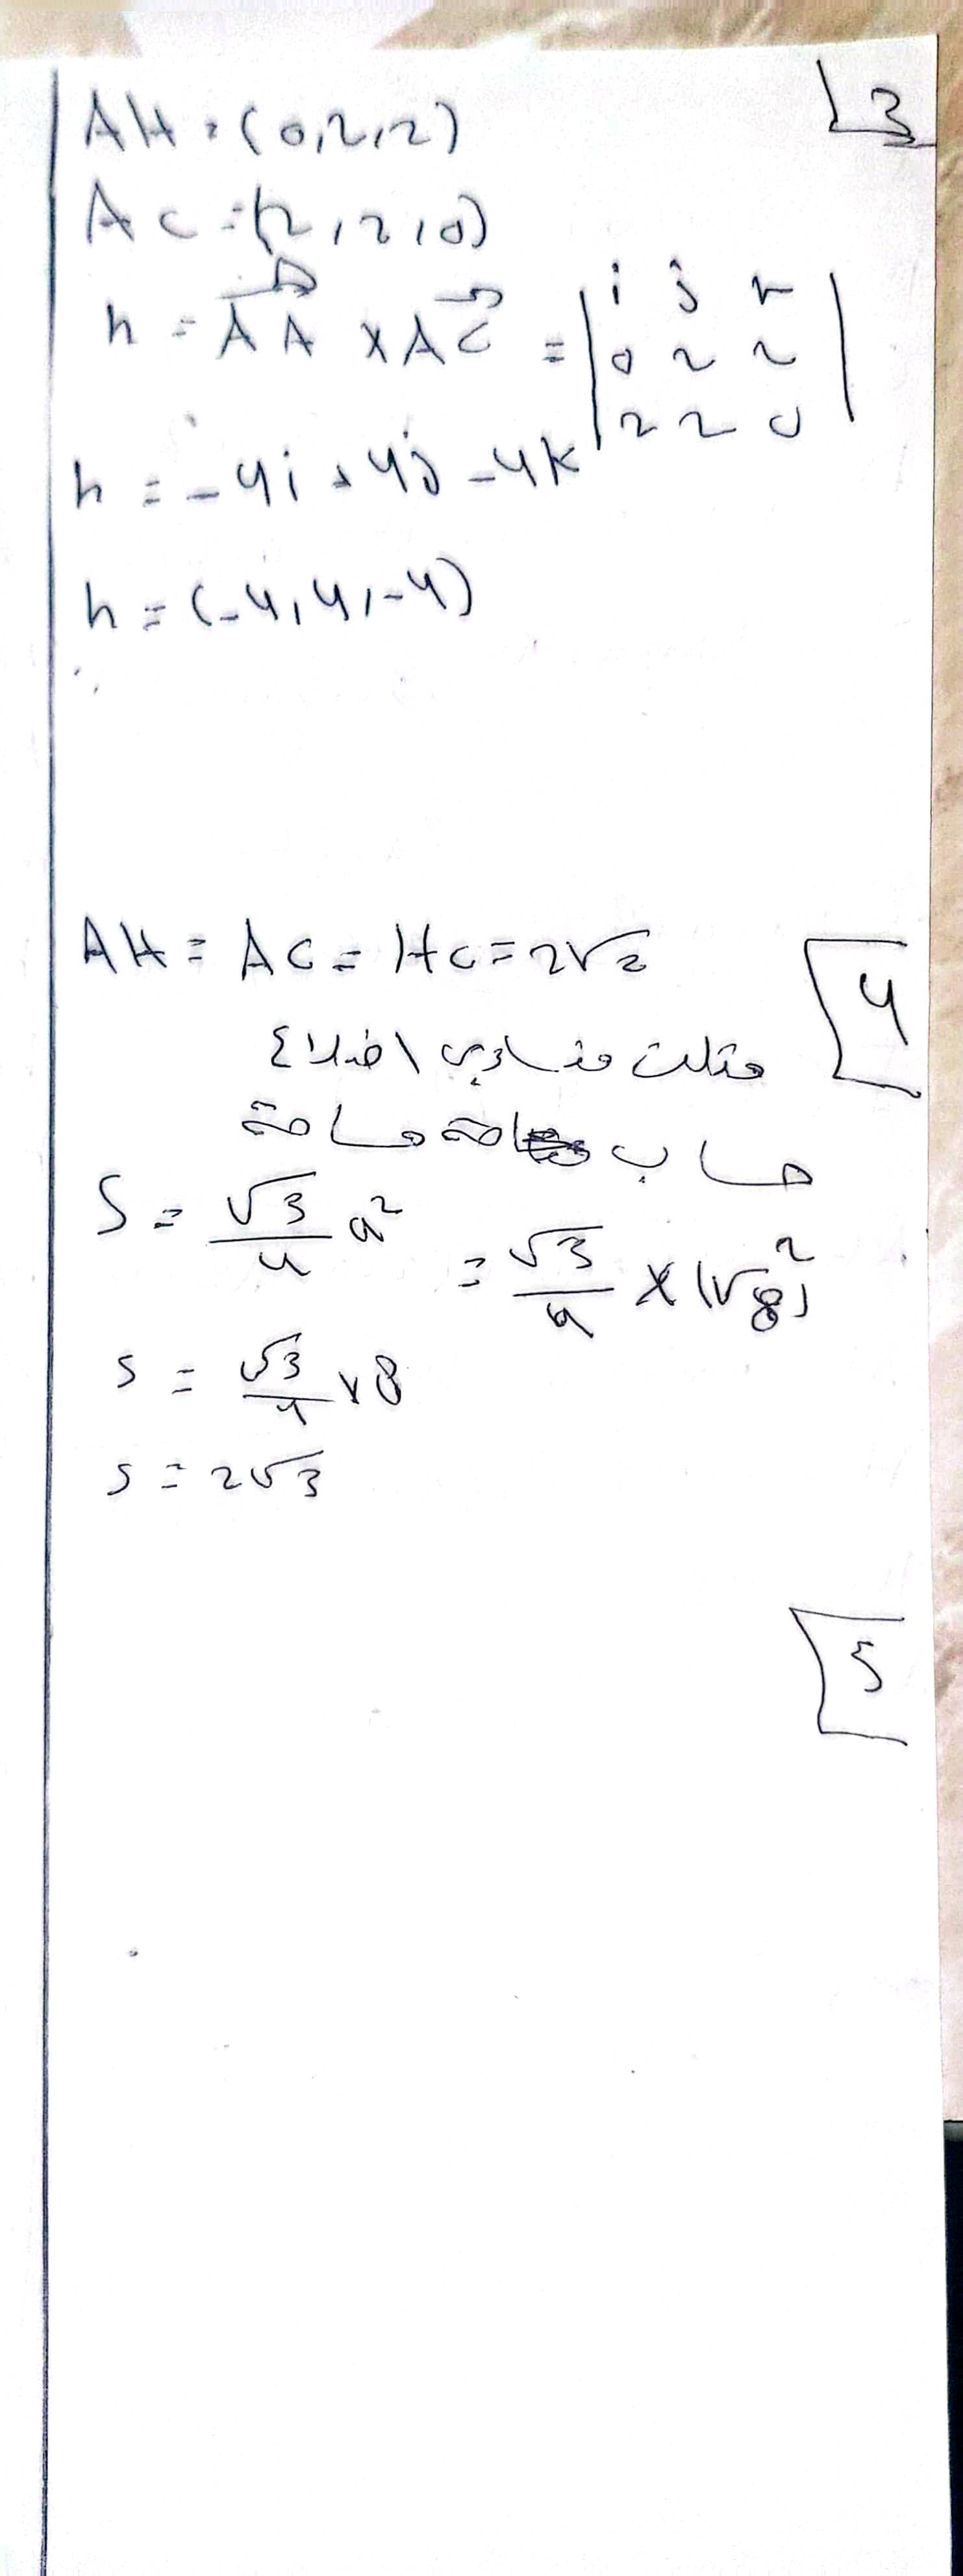 3
AH = (0,2,2)
AC = (2,2,0)
n = AA × AC = | i j k
0 2 2
2 2 0 |
n = -4i + 4j - 4k
n = (-4,4,-4)
4
AH = AC = HC = 2√2
مثلث متساوي اضلاع
حساب مساحة
S = √3/4 a² = √3/4 × (√8)²
S = √3/4 × 8
S = 2√3
5